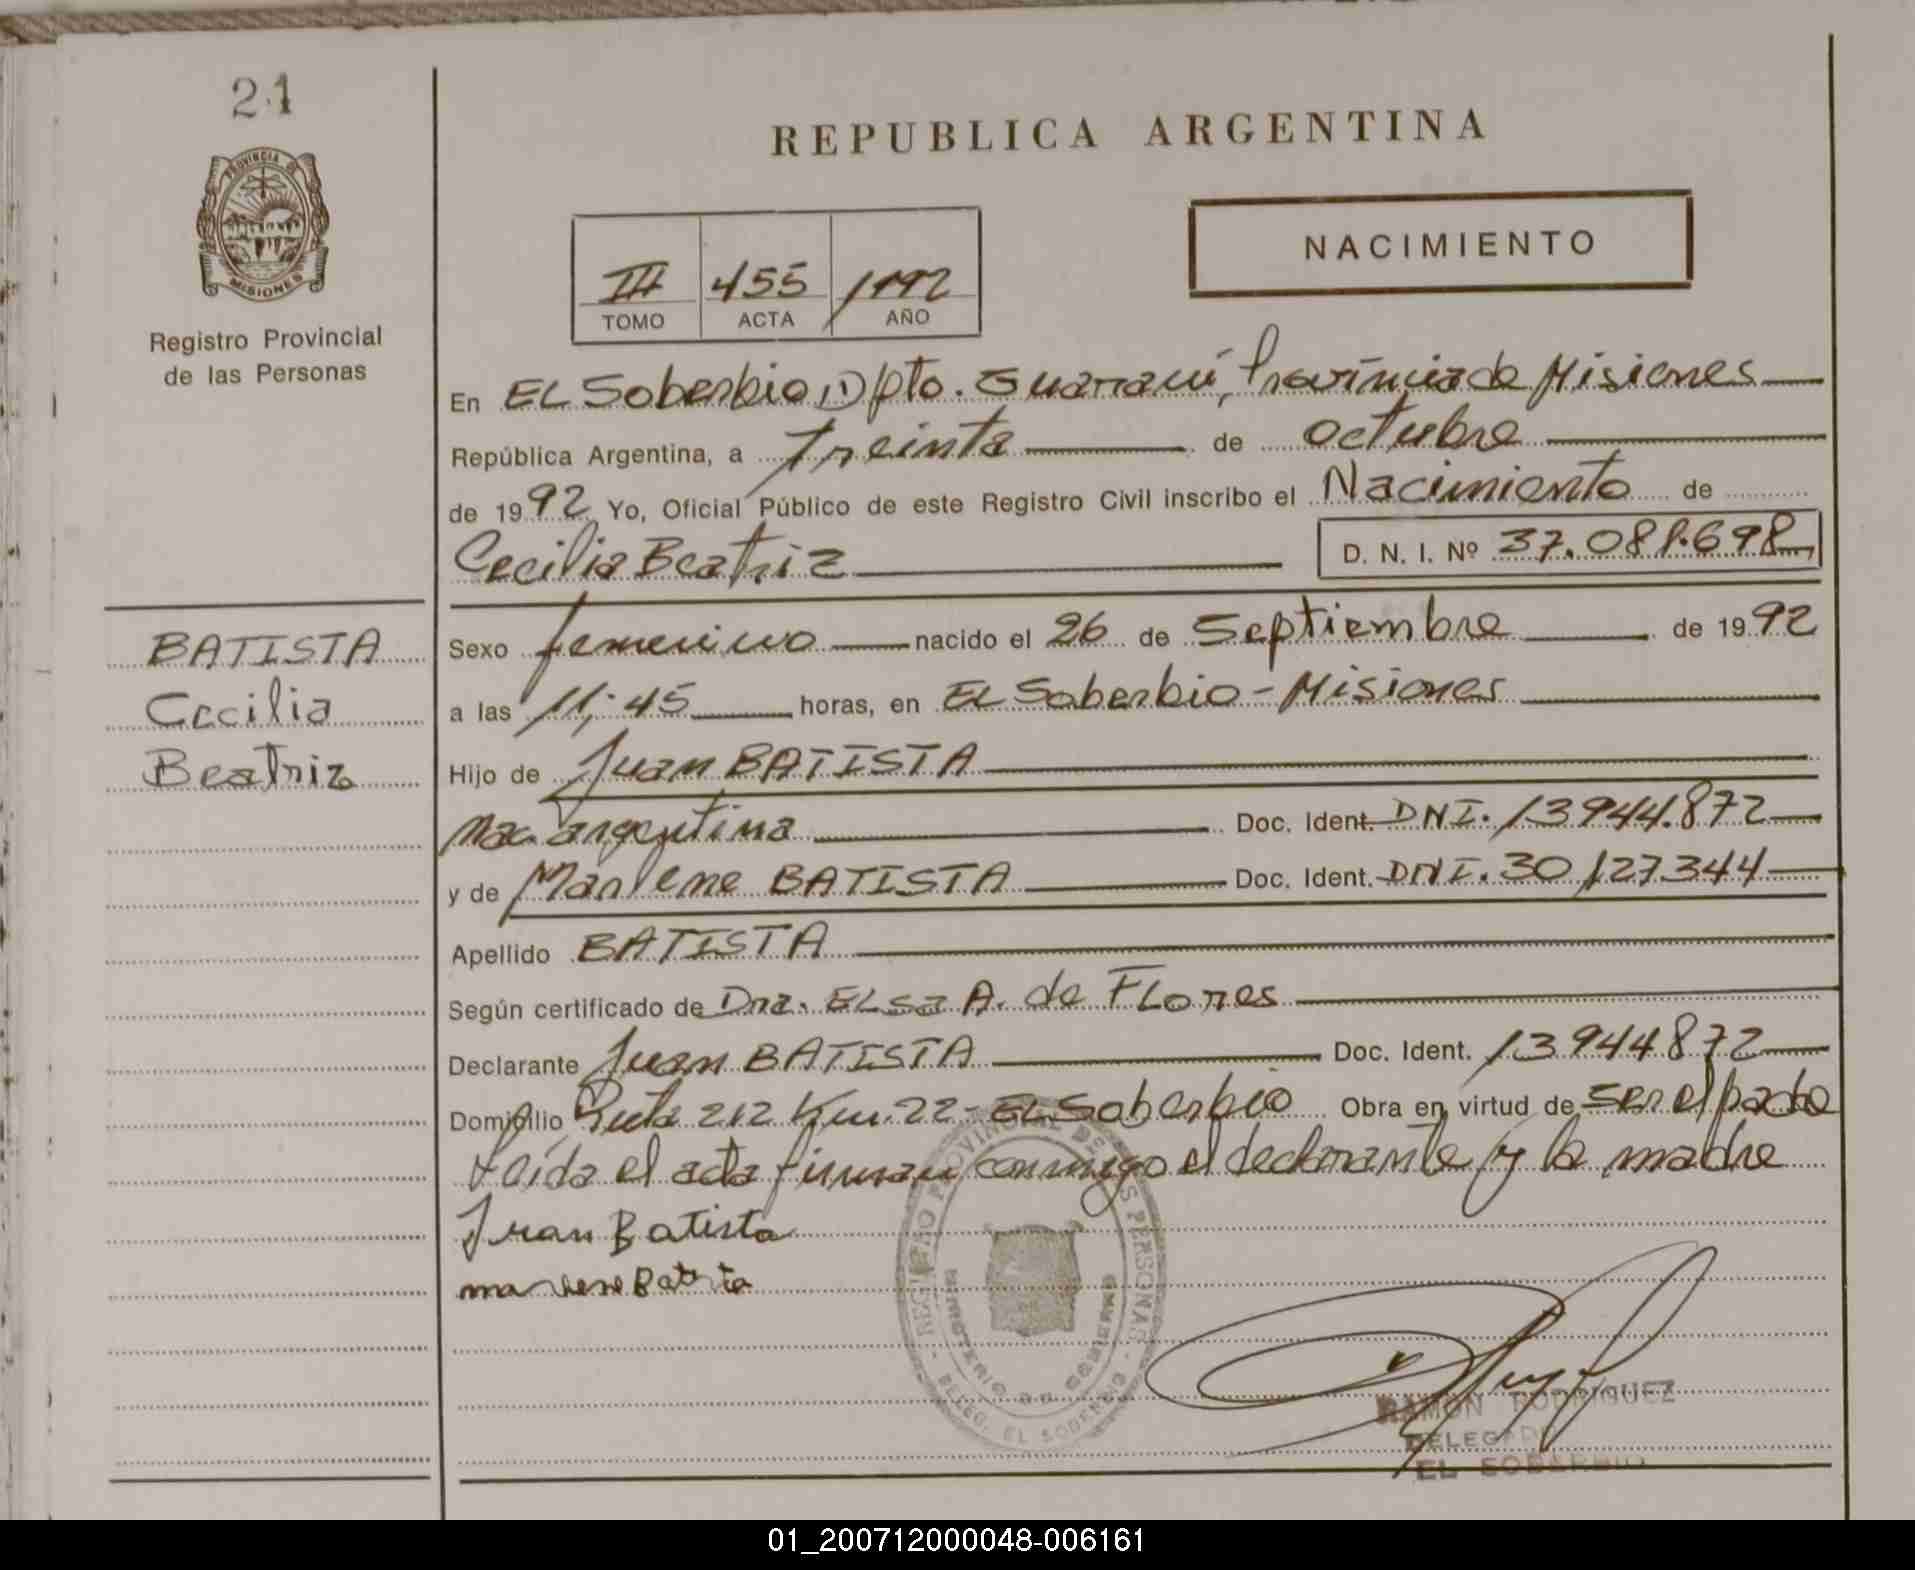 21
REPUBLICA ARGENTINA
PROVINCIA DE
MISIONES
Registro Provincial
de las Personas
NACIMIENTO
III 455 1992
TOMO ACTA AÑO
En EL Soberbio, Dpto. Guaraní, Provincia de Misiones
República Argentina, a Treinta de octubre
de 1992 Yo, Oficial Público de este Registro Civil inscribo el Nacimiento de
Cecilia Beatriz D. N. I. Nº
BATISTA
Cecilia
Beatriz
Sexo femenino nacido el 26 de Septiembre de 1992
a las 11,45 horas, en EL Soberbio - Misiones
Hijo de Juan BATISTA
nac. argentina Doc. Ident. DNI. 13944.872
y de Marlene BATISTA Doc. Ident. DNI. 30127344
Apellido BATISTA
Según certificado de Dra. ELsa A. de FLores
Declarante Juan BATISTA Doc. Ident. 13944872
Domicilio Ruta 212 Km. 22 - EL Soberbio Obra en virtud de ser el padre
Leída el acta firman conmigo el declarante y la madre
Juan Batista
marlene Batista
REGISTRO PROVINCIAL DE LAS PERSONAS
MINISTERIO DE GOBIERNO
DELEG. EL SOBERBIO
RAMON RODRIGUEZ
DELEGADO
EL SOBERBIO
01_200712000048-006161